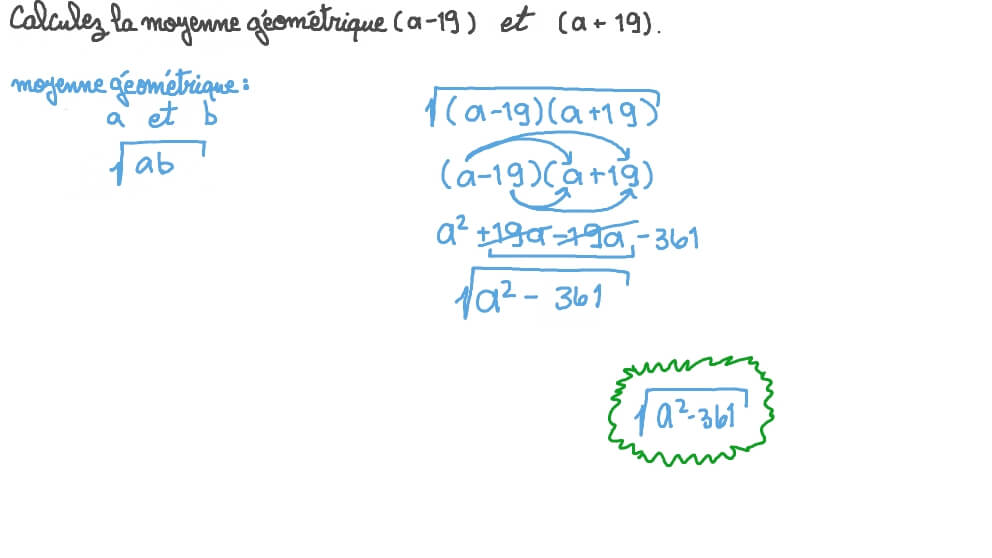 Calculez la moyenne géométrique (a-19) et (a+19).
moyenne géométrique:
a et b
√ab
√(a-19)(a+19)
(a-19)(a+19)
a² +19a-19a -361
√a² - 361
√a²-361